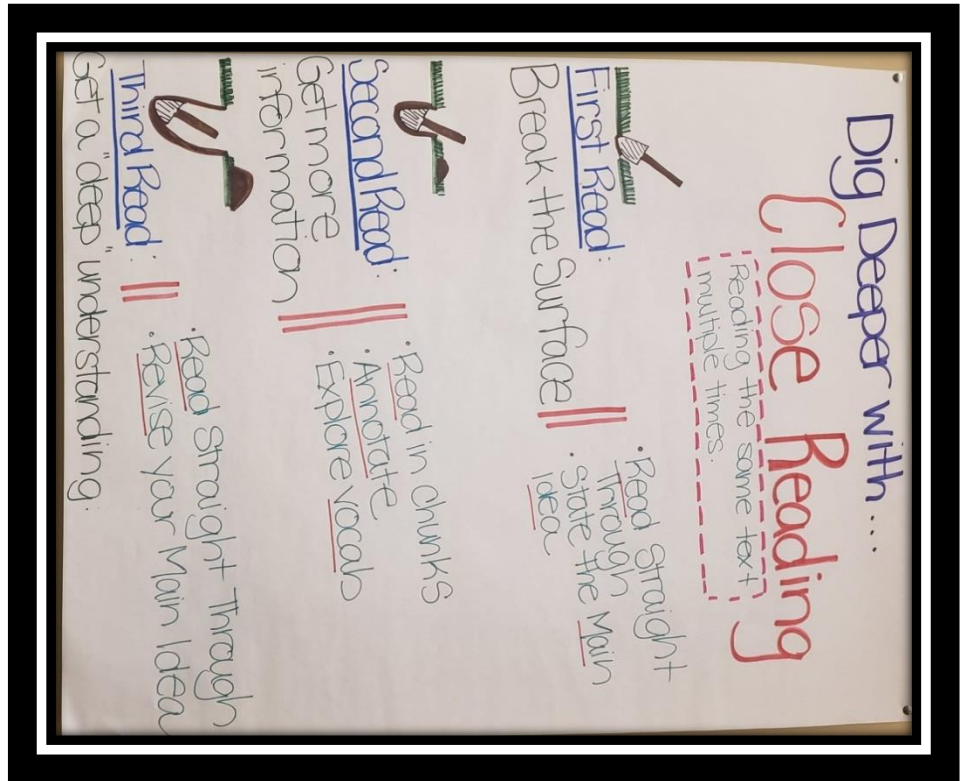 Dig Deeper with....
Close Reading
Reading the same text
multiple times.
First Read:
Break the Surface
• Read Straight
Through
• State the Main
Idea
Second Read:
Get more
information
• Read in chunks
• Annotate
• Explore vocab
Third Read:
Get a "deep" understanding.
• Read Straight Through
• Revise your Main Idea